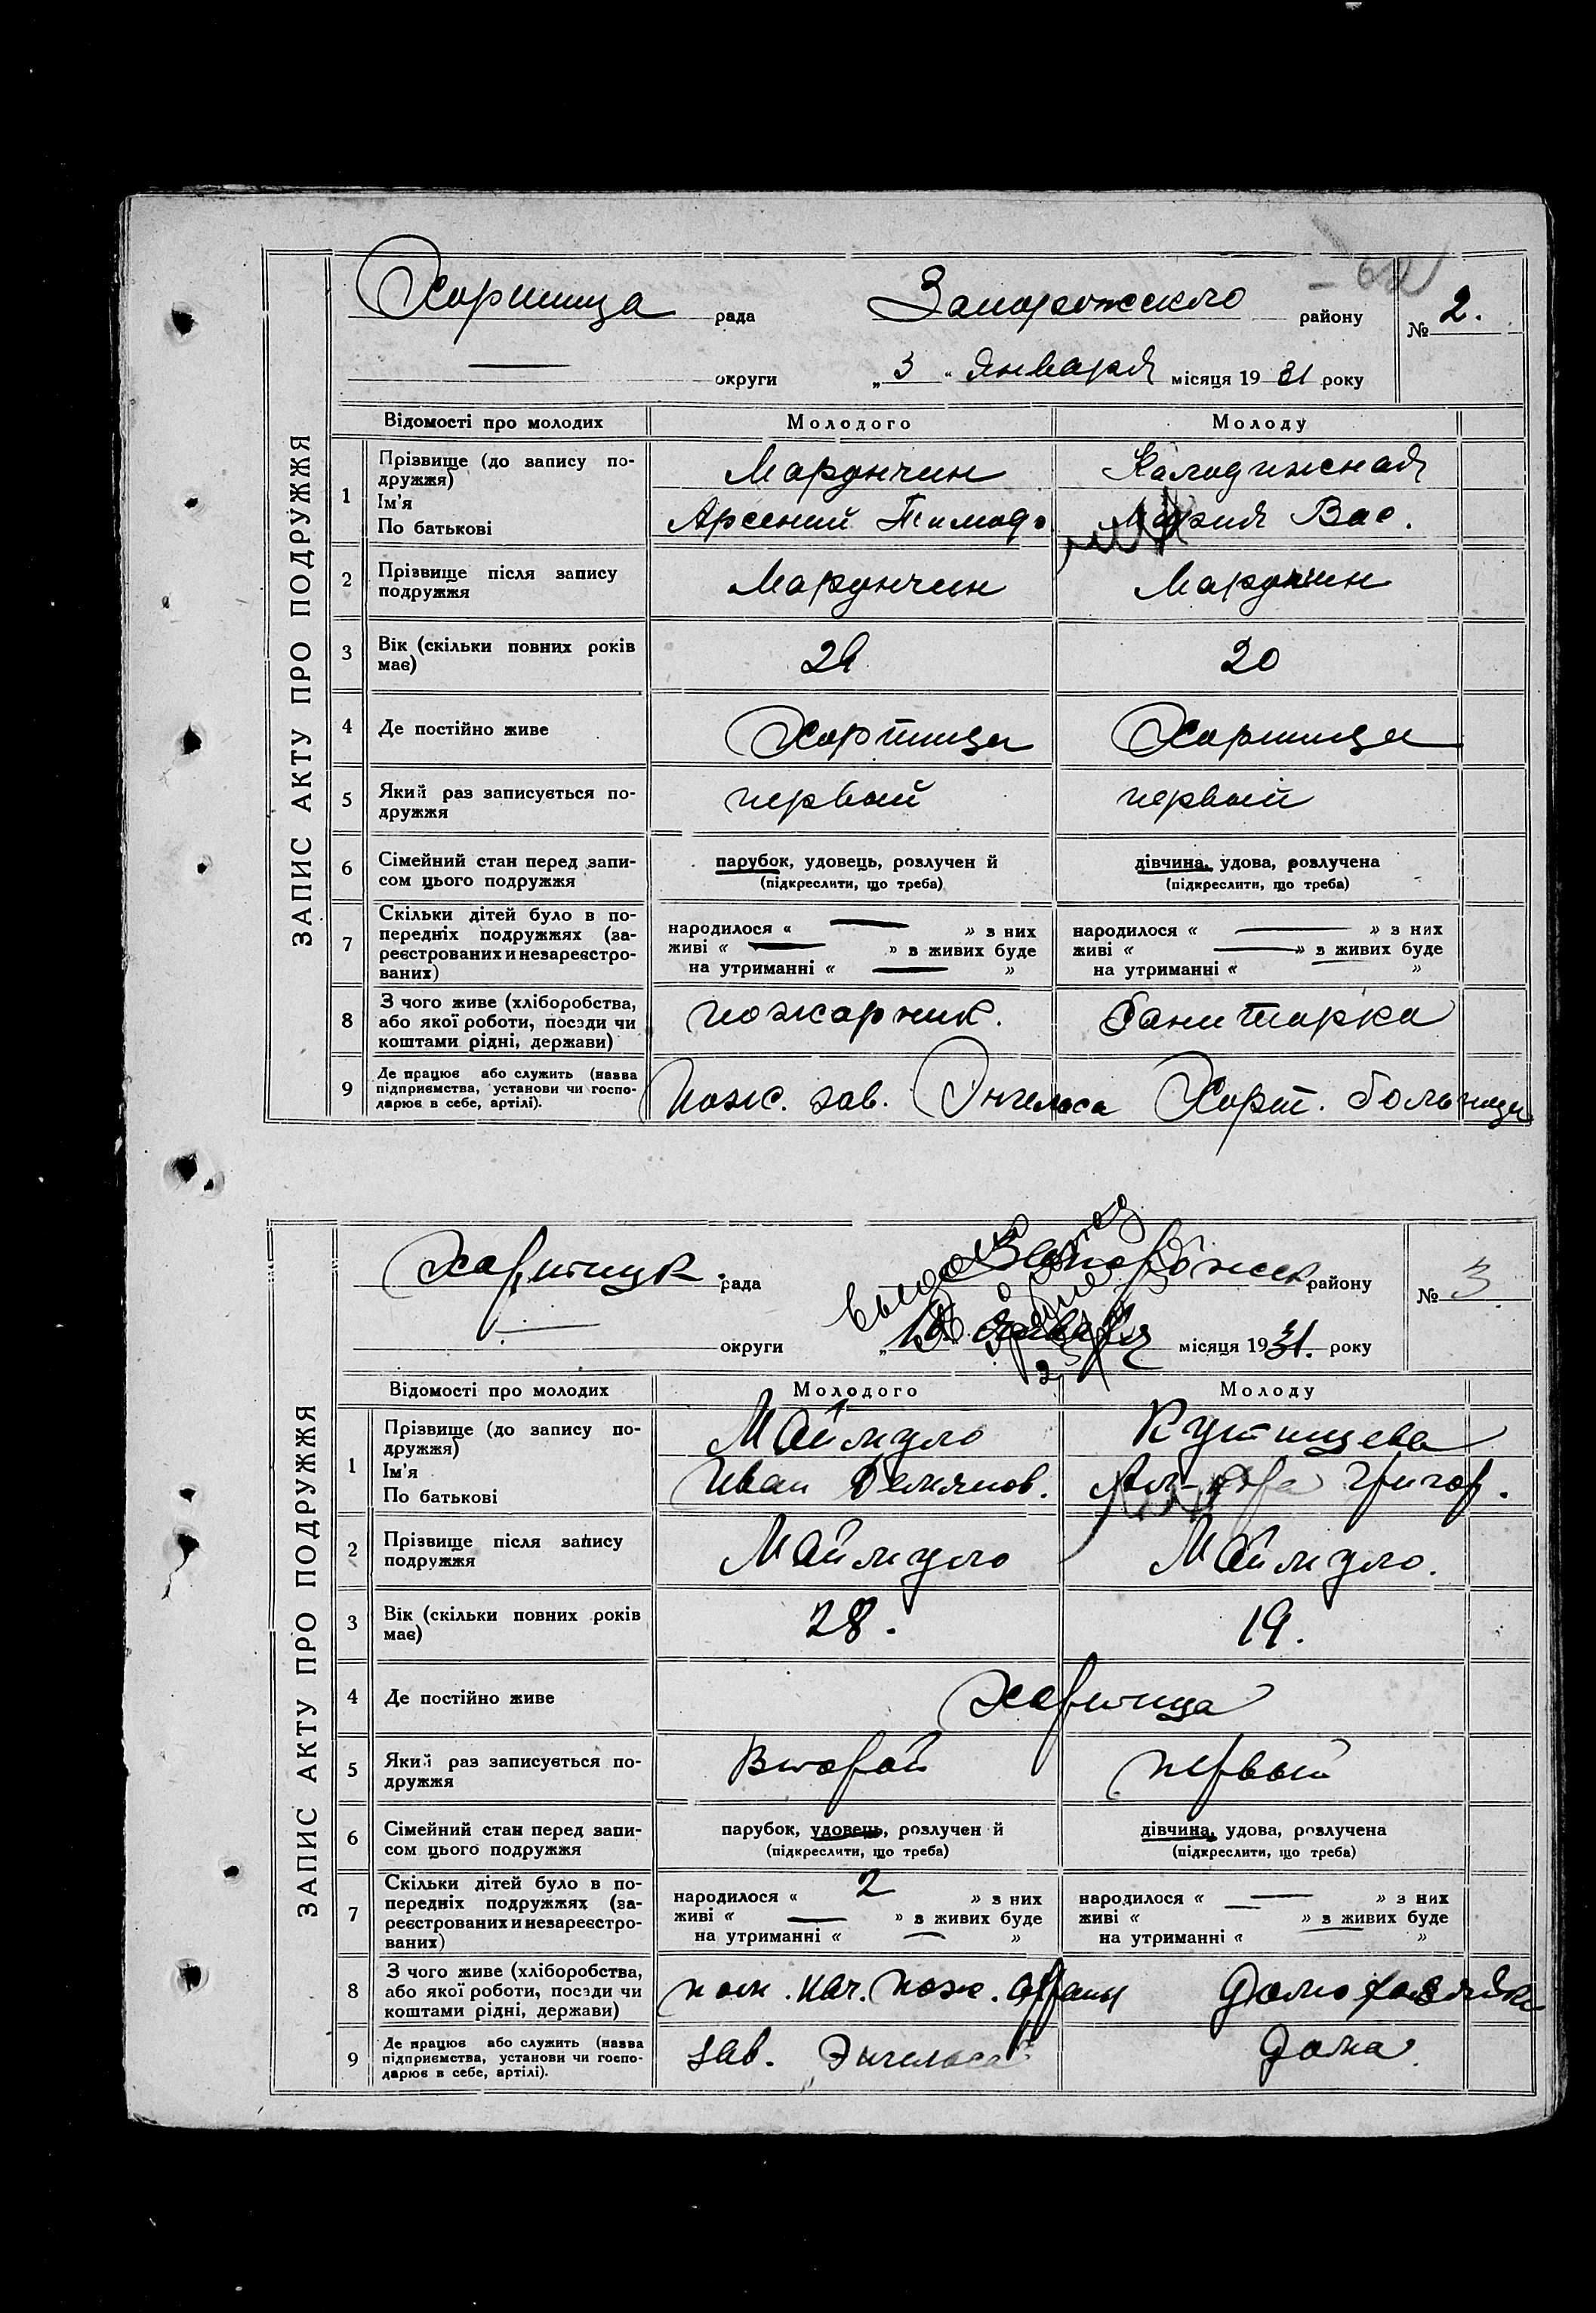 ЗАПИС АКТУ ПРО ПОДРУЖЖЯ
Хортица рада Запорожского району № 2.
округи „ 3 " Января місяця 1931 року
Відомості про молодих Молодого Молоду
1 Прізвище (до запису по-
дружжя) Марунчин Калодижная
Ім'я
По батькові Арсений Тимоф. Мария Вас.
2 Прізвище після запису
подружжя Марунчин Марунчин
3 Вік (скільки повних років
має) 20
4 Де постійно живе Хортица Хортица
5 Який раз записується по-
дружжя первый первый
6 Сімейний стан перед запи-
сом цього подружжя парубок, удовець, розлучен й дівчина, удова, розлучена
(підкреслити, що треба) (підкреслити, що треба)
7 Скільки дітей було в по-
передніх подружжях (за-
реєстрованих и незареєстро-
ваних) народилося « » з них народилося « » з них
живі « » в живих буде живі « » в живих буде
на утриманні « » на утриманні « »
8 З чого живе (хліборобства,
або якої роботи, посади чи
коштами рідні, держави) пожарник. Санитарка
9 Де працює або служить (назва
підприємства, установи чи госпо-
дарює в себе, артілі). Пож. зав. Энгельса Хорт. больница
ЗАПИС АКТУ ПРО ПОДРУЖЖЯ
Хортицк. рада Запорожск району № 3
округи „ Января місяця 1931. року
Відомості про молодих Молодого Молоду
1 Прізвище (до запису по-
дружжя) Маймуло Кутищева
Ім'я
По батькові Иван Демянов. Григор.
2 Прізвище після запису
подружжя Маймуло Маймуло.
3 Вік (скільки повних років
має) 28. 19.
4 Де постійно живе Хортица
5 Який раз записується по-
дружжя Второй первый
6 Сімейний стан перед запи-
сом цього подружжя парубок, удовець, розлучен й дівчина, удова, розлучена
(підкреслити, що треба) (підкреслити, що треба)
7 Скільки дітей було в по-
передніх подружжях (за-
реєстрованих и незареєстро-
ваних) народилося « 2 » з них народилося « » з них
живі « » в живих буде живі « » в живих буде
на утриманні « » на утриманні « »
8 З чого живе (хліборобства,
або якої роботи, посади чи
коштами рідні, держави) пом. нач. пож. охраны Домохозяйка
9 Де працює або служить (назва
підприємства, установи чи госпо-
дарює в себе, артілі). зав. Энгельса Дома